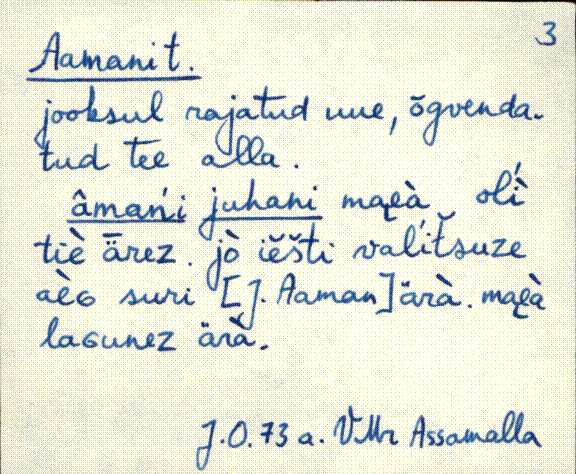 3
Aamanit.
jooksul rajatud uue, õgvenda-
tud tee alla.
âmańi juhani mai̭à olì
tiè ǟrez. jò iěšti valítšuze
aèG suri [J. Aaman] ärà. mai̭à
laGunez ärà.
J.O. 73 a. VMr Assamalla